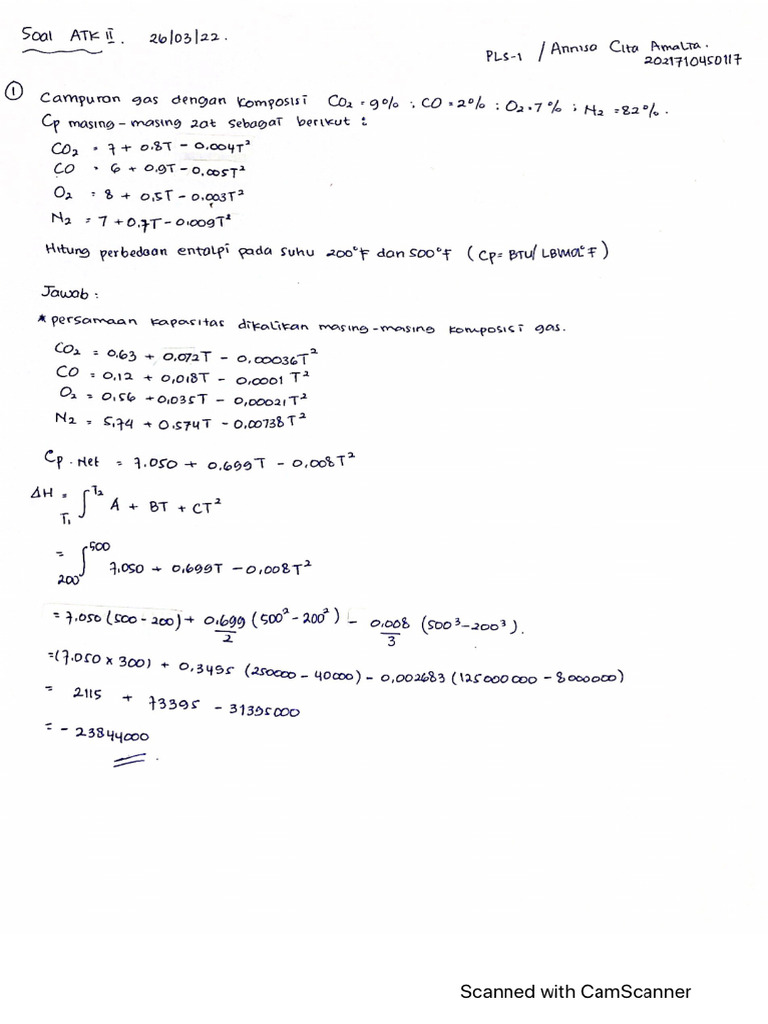 Soal ATK II. 26/03/22.
PLS-1 / Annisa Cita Amalia.
2021710450117
① Campuran gas dengan komposisi CO₂ = 9% ; CO = 2% ; O₂ = 7% ; N₂ = 82%.
Cp masing-masing zat sebagai berikut :
CO₂ = 7 + 0.8T - 0.004T²
CO = 6 + 0.9T - 0.005T²
O₂ = 8 + 0,5T - 0.003T²
N₂ = 7 + 0.7T - 0.009T²
Hitung perbedaan entalpi pada suhu 200°F dan 500°F ( Cp = BTU/ LBMOL°F )
Jawab :
* persamaan kapasitas dikalikan masing-masing komposisi gas.
CO₂ = 0,63 + 0,072T - 0,00036T²
CO = 0,12 + 0,018T - 0,0001 T²
O₂ = 0,56 + 0,035T - 0,00021T²
N₂ = 5,74 + 0.574T - 0,00738T²
Cp. Net = 7.050 + 0.699T - 0.008T²
ΔH = ∫ T₁ T₂ A + BT + CT²
= ∫ 200 500 7,050 + 0,699T - 0,008T²
= 7.050 (500 - 200) + 0.699/2 (500² - 200²) - 0.008/3 (500³ - 200³).
= (7.050 x 300) + 0,3495 (250000 - 40000) - 0,002683 (125000000 - 8000000)
= 2115 + 73395 - 31395000
= - 23844000
Scanned with CamScanner